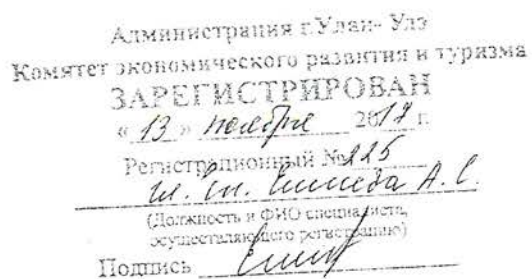 Администрация г.Улан-Удэ
Комитет экономического развития и туризма
ЗАРЕГИСТРИРОВАН
« 13 » ноября 2017 г.
Регистрационный № 225
гл. сп. А. С.
(Должность и ФИО специалиста,
осуществляющего регистрацию)
Подпись